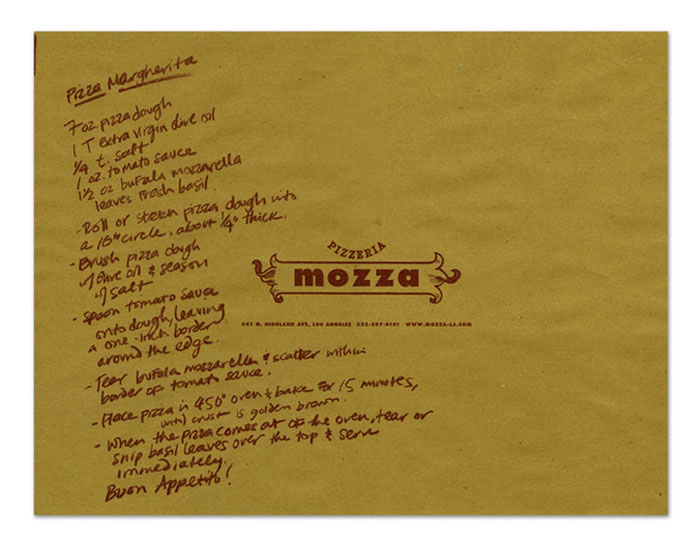 Pizza Margherita
7 oz pizza dough
1 T extra virgin olive oil
1/4 t. salt
1 oz. tomato sauce
1 1/2 oz bufala mozzarella
leaves fresh basil
- Roll or stretch pizza dough into
a 10" circle, about 1/4" thick.
- Brush pizza dough
w/ olive oil & season
w/ salt
- Spoon tomato sauce
onto dough, leaving
a one-inch border
around the edge.
- Tear bufala mozzarella & scatter within
border of tomato sauce.
- Place pizza in 450° oven & bake for 15 minutes,
until crust is golden brown.
- When the pizza comes out of the oven, tear or
snip basil leaves over the top & serve
immediately.
Buon Appetito!
PIZZERIA
mozza
641 N. HIGHLAND AVE, LOS ANGELES 323-297-0101 WWW.MOZZA-LA.COM